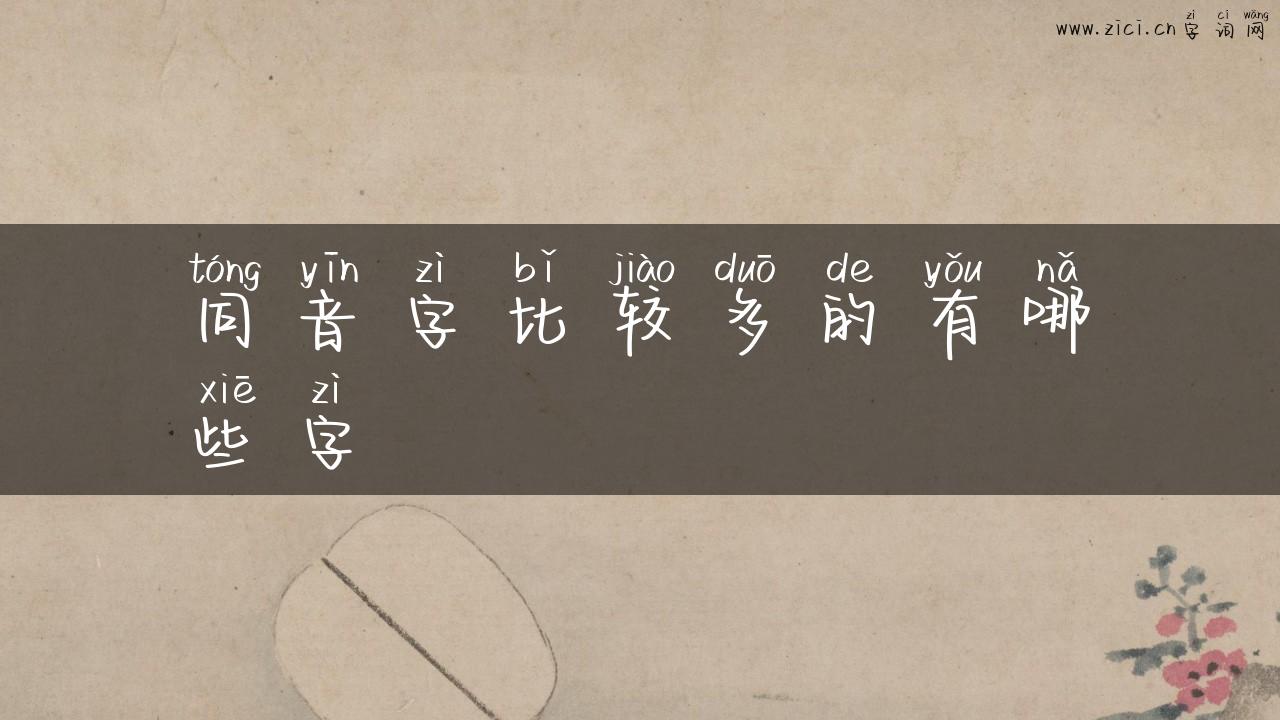 zì cí wǎng
www.zici.cn字词网
tóng yīn zì bǐ jiào duō de yǒu nǎ
同音字比较多的有哪
xiē zì
些字